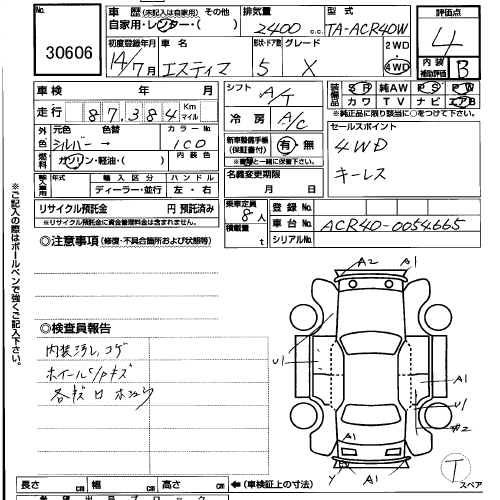 No.
30606
車歴 (未記入は自家用) その他
自家用・レンター・( )
排気量
2400 c.c.
型式
TA-ACR40W
評価点
4
内装
補助評価
B
初度登録年月
14/7月
車名
エスティマ
形状・ドア数
5
グレード
X
2WD
・
4WD
車検 年 月
走行 87,384 Km
マイル
外色
元色 色替
シルバー →
カラーNo.
1C0
燃料
ガソリン・軽油・( )
内装色
輸入車用
年式
輸入区分
ディーラー・並行
ハンドル
左・右
リサイクル預託金 円 預託済み
※リサイクル預託金に資金管理料金は含まれますん。
シフト
A/T
冷房
A/C
装備品
SR 純AW PS PW
カワ TV ナビ エアB
※純正品に限り該当に○をつけて下さい。
新車整備手帳
(保証書付)
有・無
※車検証と一緒に保管下さい。
名義変更期限
月 日
セールスポイント
4WD
キーレス
乗車定員
8人
積載量
t
登録No.
車台No. ACR40-0054665
シリアルNo.
◎注意事項 (修復・不具合箇所および状態等)
※ご記入の際はボールペンで強くご記入下さい。
◎検査員報告
内装汚レ、コゲ
ホイールC/Pキズ
A2
A1
U1
A1
U1
A2
A1
Y
A1
T
スペア
長さ cm 幅 cm 高さ cm ← (車検証上の寸法)